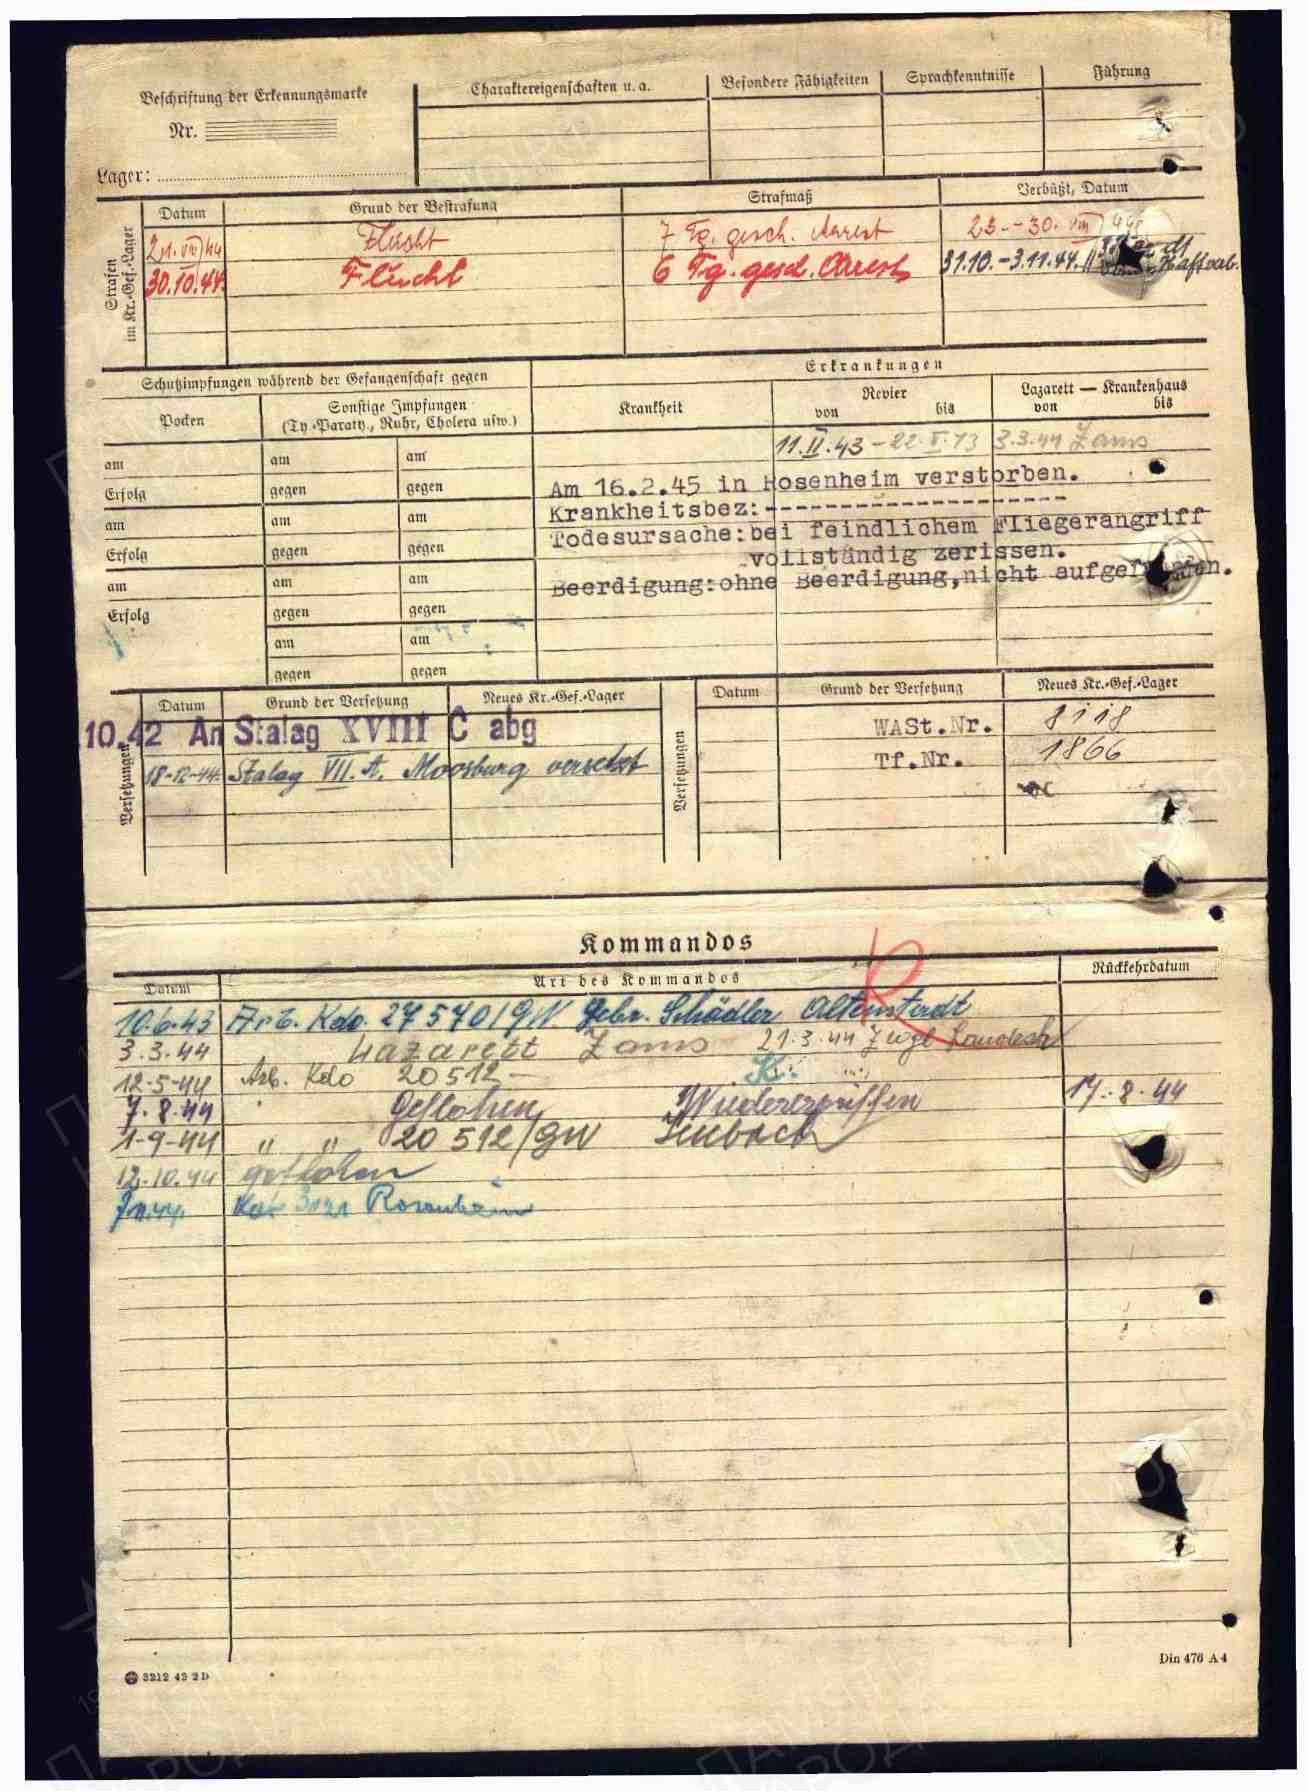 Beschriftung der Erkennungsmarke
Nr.
Lager:
Charaktereigenschaften u. a.
Besondere Fähigkeiten
Sprachkenntnisse
Führung
Strafen im Kr.-Gef.-Lager
Datum Grund der Bestrafung Strafmaß Verbüßt, Datum
21. VIII 44 Flucht 7 Tg. gesch. Arrest 23.-30. VIII
30.10.44. Flucht 6 Tg. gesch. Arrest 31.10.-3.11.44.
Schutzimpfungen während der Gefangenschaft gegen
Erkrankungen
Pocken
Sonstige Impfungen
(Ty.-Paraty., Ruhr, Cholera usw.)
Krankheit
Revier
von bis
Lazarett — Krankenhaus
von bis
11.II.43 - 22.V.43 3.3.44 Zams
am am am
Erfolg gegen gegen
am am am
Erfolg gegen gegen
am am am
Erfolg gegen gegen
am am
gegen gegen
Am 16.2.45 in Rosenheim verstorben.
Krankheitsbez:--------------------
Todesursache: bei feindlichem Fliegerangriff
vollständig zerissen.
Beerdigung: ohne Beerdigung, nicht aufgefunden.
Versetzungen
Datum Grund der Versetzung Neues Kr.-Gef.-Lager
10.42 An Stalag XVIII C abg
18-12-44. Stalag VII. A. Moosburg versetzt
Versetzungen
Datum Grund der Versetzung Neues Kr.-Gef.-Lager
WASt.Nr. 8118
Tf.Nr. 1866
Kommandos
Datum Art des Kommandos Rückkehrdatum
R
10.6.43 Arb. Kdo. 27570/GW. Gebr. Schädler Altenstadt
3.3.44 Lazarett Zams 21.3.44
12-5-44 Arb. Kdo 20512 - K.
7.8.44 Geflohen Wiederergriffen 17.-8.44
1-9-44 " " 20512/GW
12.-10.44 geflohen
Rosenheim
3212 43 2 D
Din 476 A 4